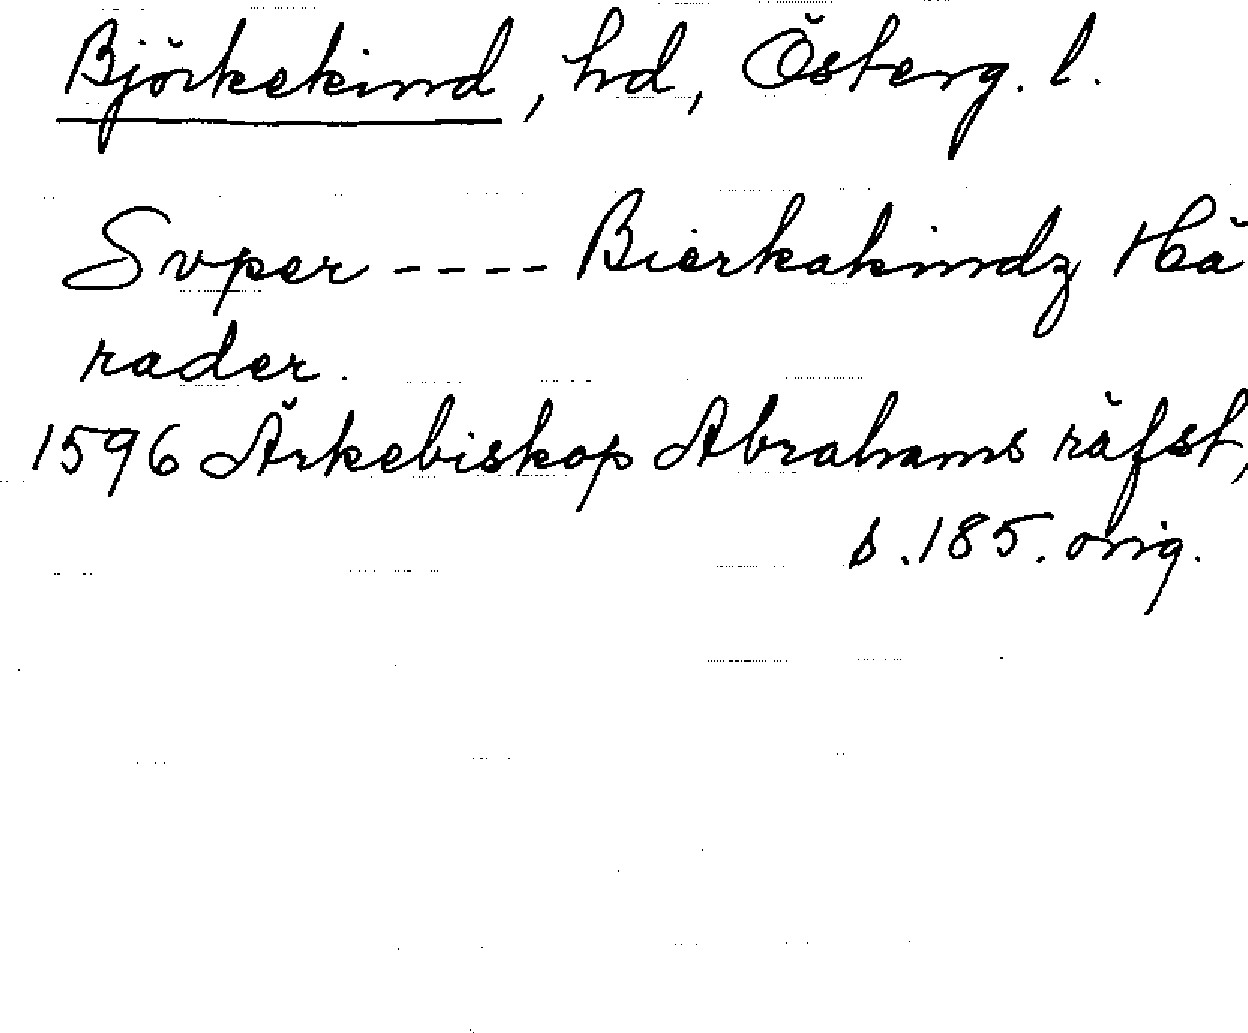 Björkekind, hd, Österg. l.
Svper ---- Bierkakindz Hä
rader.
1596 Ärkebiskop Abrahams räfst,
s. 185. orig.